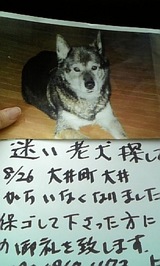 迷い老犬探して
8/26 大井町大井
からいなくなりました
保ゴして下さった方に
御礼を致します